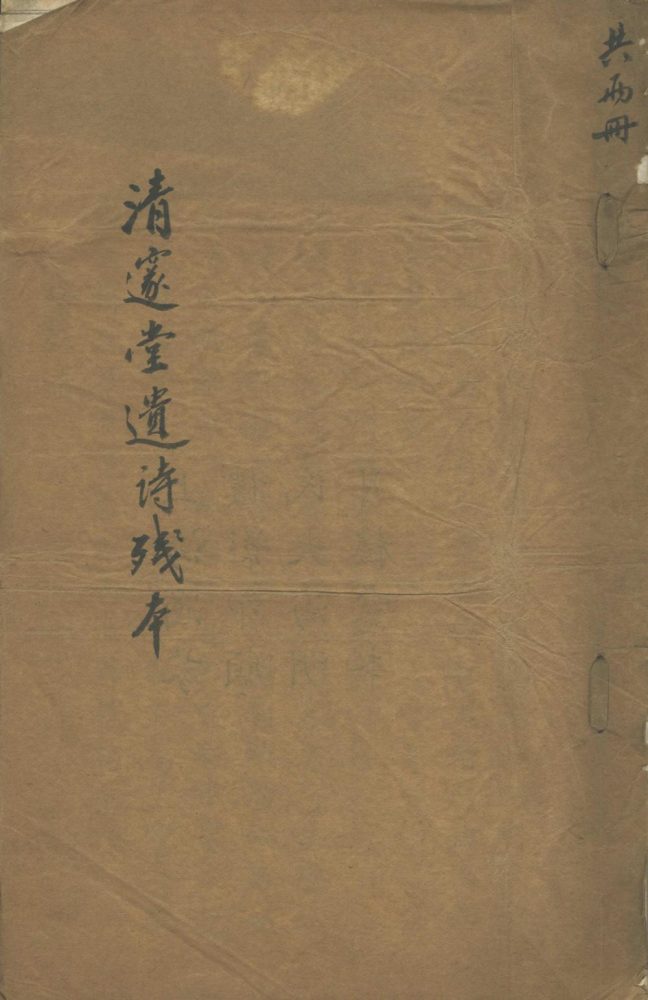 共両冊
清邃堂遺詩残本